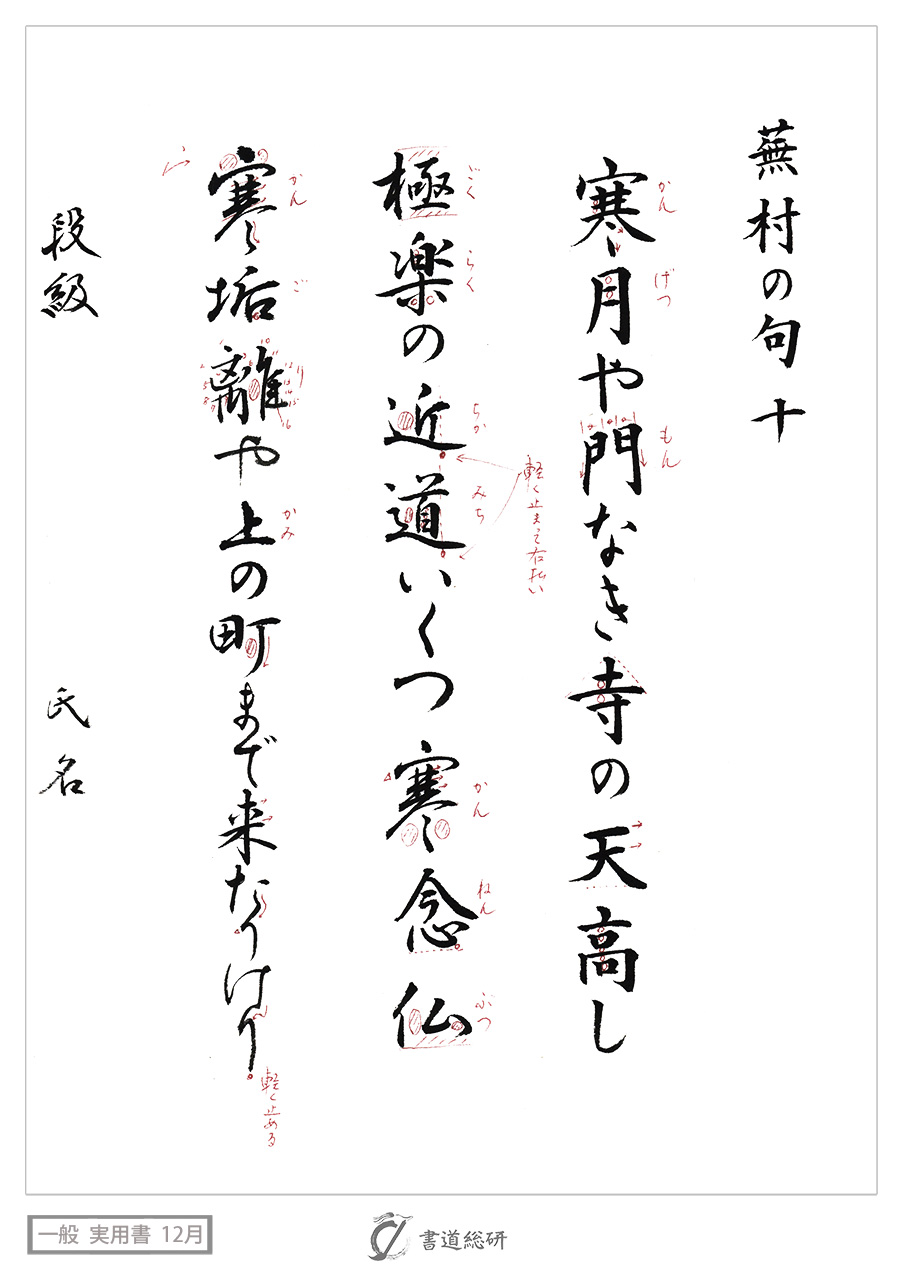 蕪村の句 十
寒月や門なき寺の天高し
かん
げつ
もん
極楽の近道いくつ寒念仏
ごく
らく
ちか
みち
かん
ねん
ぶつ
軽く止まって右払い
寒垢離や上の町まで来たりけり
かん
ご
り
かみ
軽く止める
段級
氏名
一般 実用書 12月
書道総研